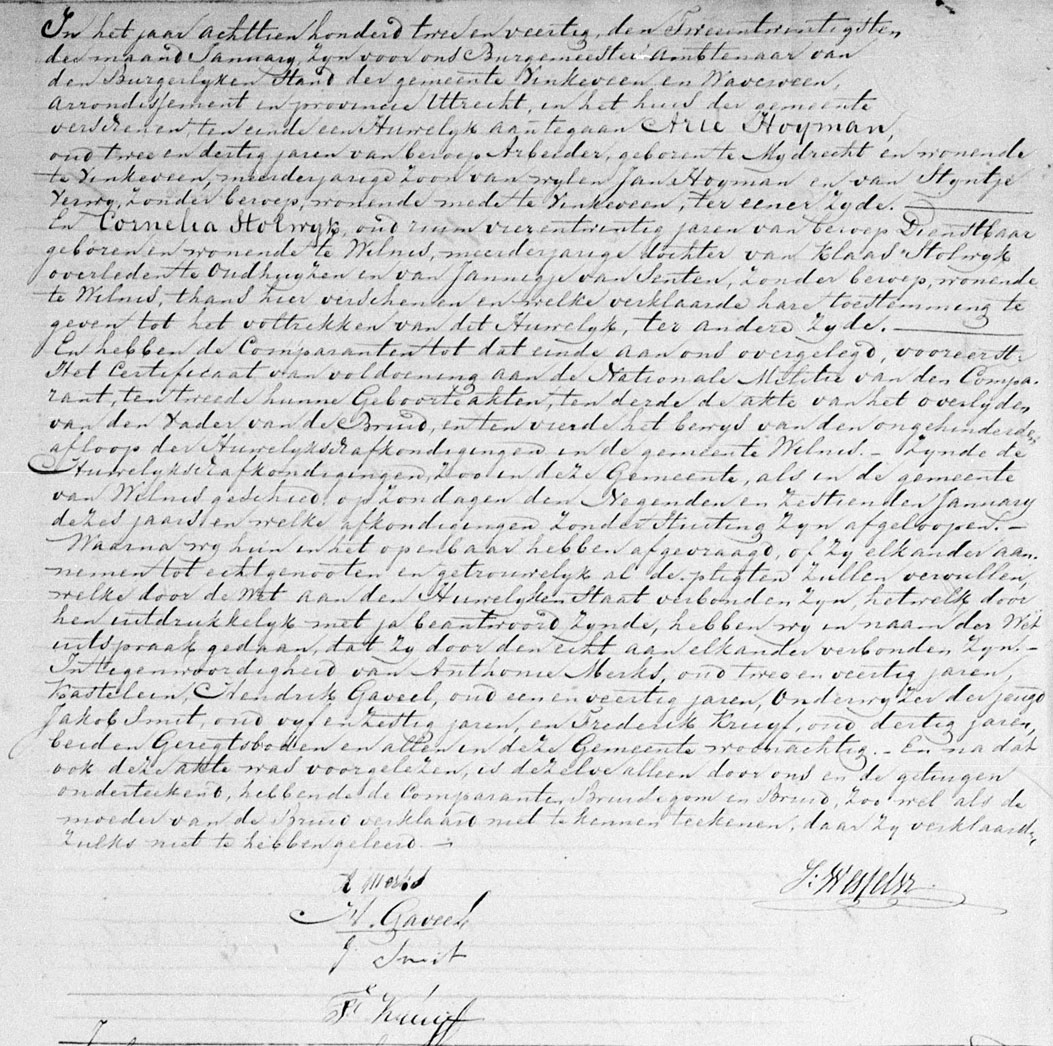 In het jaar achttien honderd twee en veertig, den Tweeentwintigsten
der maand January, zyn voor ons Burgemeester Ambtenaar van
den Burgerlyken Stand der gemeente Vinkeveen en Waverveen,
arrondissement en provincie Utrecht, in het huis der gemeente
verschenen, ten einde een Huwelyk aantegaan Arie Hoyman,
oud twee en dertig jaren van beroep Arbeider, geboren te Mydrecht en wonende
te Vinkeveen, meerderjarige zoon van wylen Jan Hoyman en van Styntje
Verwy, zonder beroep, wonende mede te Vinkeveen, ter eener zyde.
En Cornelia Stolwyk, oud ruim vierentwintig jaren van beroep Dienstbaar
geboren en wonende te Wilnis, meerderjarige dochter van Klaas Stolwyk
overleden te Oudhuyzen en van Jannegje van Senten, zonder beroep, wonende
te Wilnis, thans hier verschenen en welke verklaarde hare toestemming te
geven tot het voltrekken van dit Huwelyk, ter andere zyde.
En hebben de Comparanten tot dat einde aan ons overgelegd, vooreerst:
Het Certificaat van voldoening aan de Nationale Militie van den Compa-
rant, ten tweede hunne Geboorte akten, ten derde de akte van het overlyden
van den Vader van de Bruid, en ten vierde het bewys van den ongehinderden
afloop der Huwelyksafkondigingen in de gemeente Wilnis. - Zynde de
Huwelyksafkondigingen, zoo in deze Gemeente, als in de gemeente
van Wilnis geschied op zondagen den Negenden en Zestienden January
dezes jaars en welke afkondigingen zonder stuiting zyn afgeloopen. -
Waarna wy hun in het openbaar hebben afgevraagd, of zy elkander aan-
nemen tot echtgenooten en getrouwelyk al de pligten zullen vervullen,
welke door de Wet aan den Huwelyken Staat verbonden zyn, hetwelk door
hen uitdrukkelyk met ja beantwoord zynde, hebben wy in naam der Wet
uitspraak gedaan, dat zy door den echt aan elkander verbonden zyn. -
In tegenwoordigheid van Anthonie Merks, oud twee en veertig jaren,
Kastelein, Hendrik Gaveel, oud een en veertig jaren, Onderwyzer der jeugd
Jakob Smit, oud vyf en zestig jaren, en Frederik Kruyf, oud dertig jaren,
beiden Geregtsboden en allen in deze Gemeente woonachtig. - En na dat
ook deze akte was voorgelezen, is dezelve alleen door ons en de getuigen
onderteekend, hebbende de Comparanten Bruidegom en Bruid, zoo wel als de
moeder van de Bruid verklaard niet te kennen teekenen, daar zy verklaarde,
zulks niet te hebben geleerd. -
A Merks
S. Wesselsz
H. Gaveel
J Smit
F Kruijff